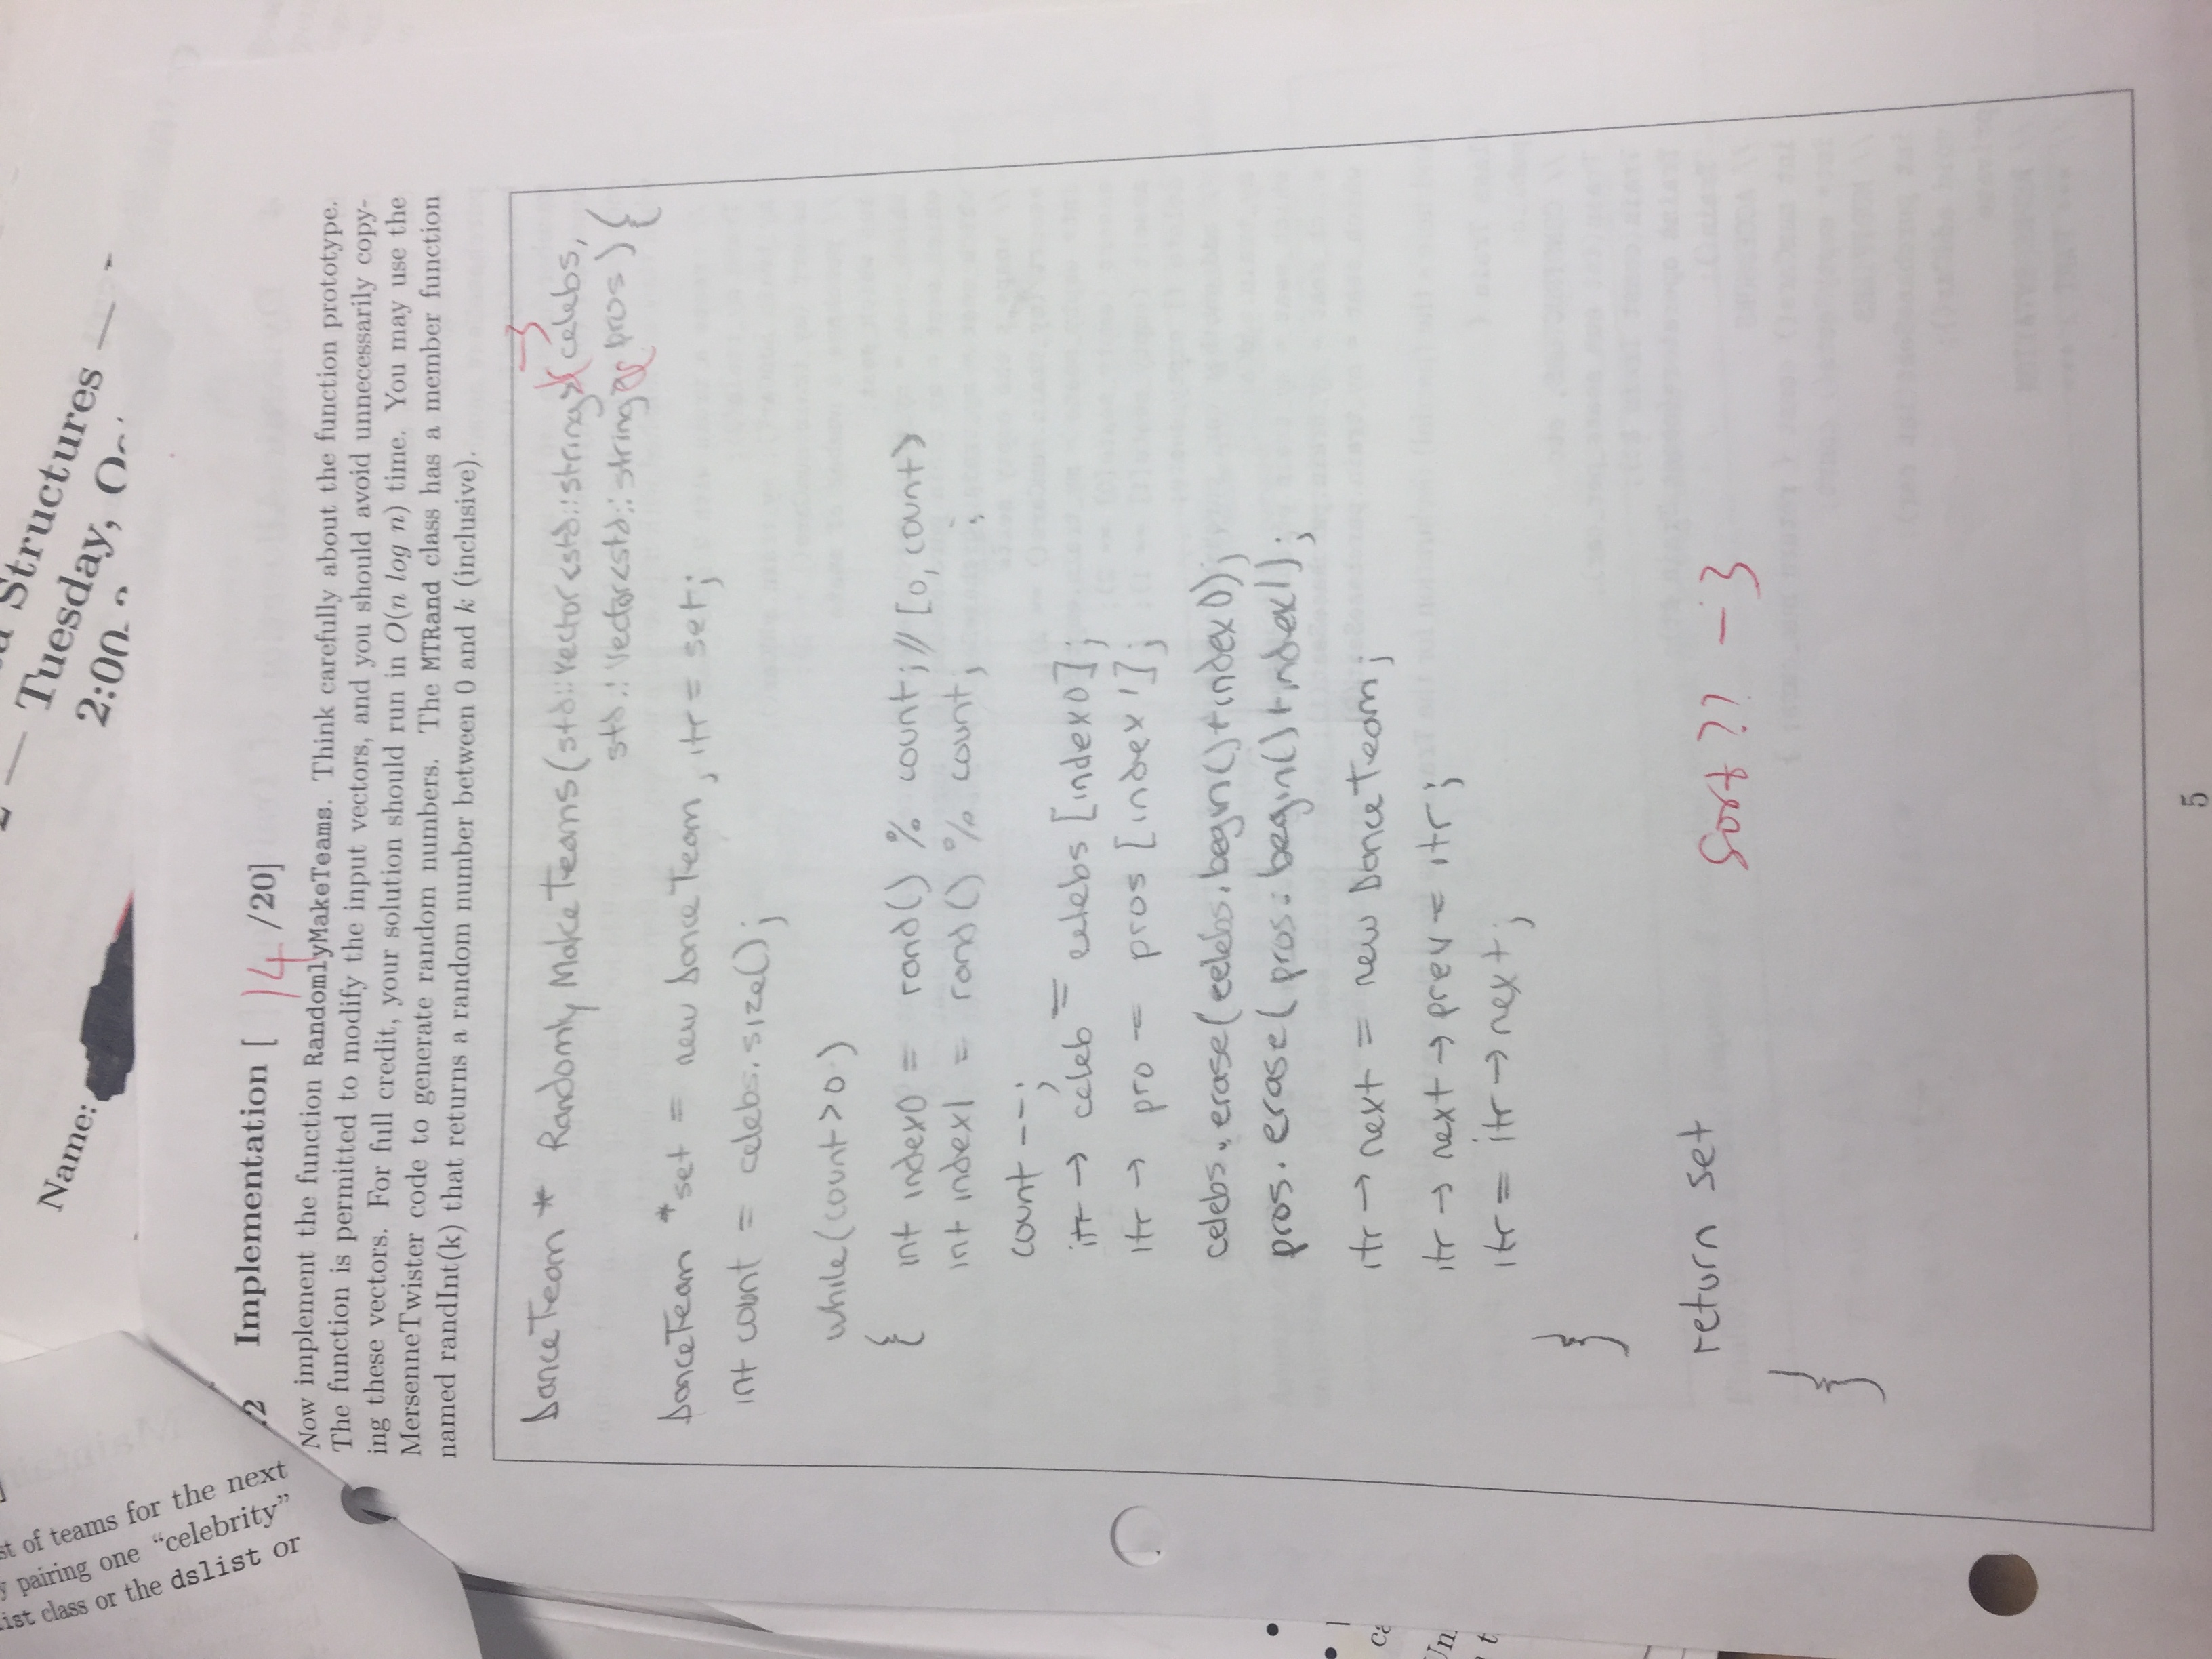 st of teams for the next
y pairing one “celebrity”
ist class or the dslist or
Structures —
— Tuesday,
2:00
Name:
.2 Implementation [ 14 /20]
Now implement the function RandomlyMakeTeams. Think carefully about the function prototype.
The function is permitted to modify the input vectors, and you should avoid unnecessarily copy-
ing these vectors. For full credit, your solution should run in O(n log n) time. You may use the
MersenneTwister code to generate random numbers. The MTRand class has a member function
named randInt(k) that returns a random number between 0 and k (inclusive).
-3
DanceTeam * RandomlyMakeTeams(std::vector<std::string>& celebs,
std::vector<std::string& pros){
DanceTeam *set = new DanceTeam, itr = set;
int count = celebs.size();
while(count>0)
{ int index0 = rand() % count; // [0, count)
int index1 = rand() % count;
count --;
itr → celeb = celebs [index0];
itr → pro = pros [index1];
celebs.erase(celebs.begin()+index0);
pros.erase(pros.begin()+index1);
itr → next = new DanceTeam;
itr → next → prev = itr;
itr = itr → next;
}
return set
Sort?? -3
}
5